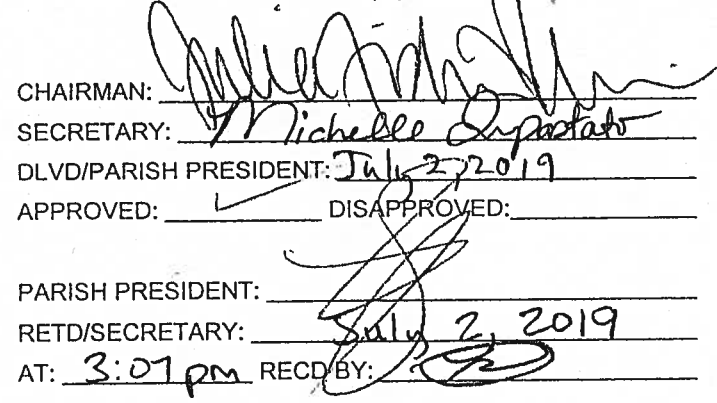 CHAIRMAN:
SECRETARY: Michelle Impastato
DLVD/PARISH PRESIDENT: July 2, 2019
APPROVED: ✓ DISAPPROVED:
PARISH PRESIDENT:
RETD/SECRETARY: July 2, 2019
AT: 3:07 pm RECD BY: